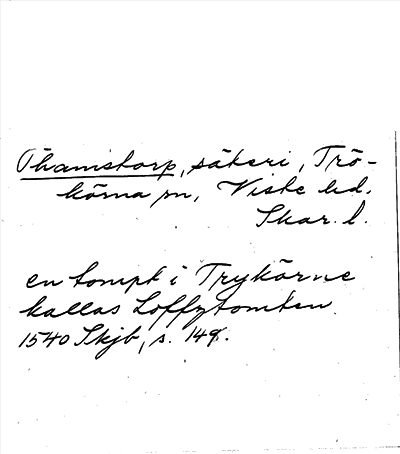 Thamstorp, säteri, Trö-
körna sn, Viste hd.
Skar. l.
en tompt i Trykörne
kallas Loffztomten
1540 Skjb, s. 149.